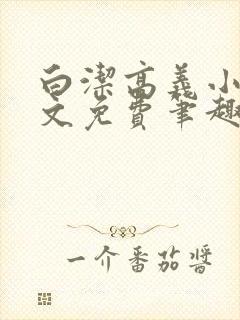 白潔高義小
文免費筆趣
一介番茄醬